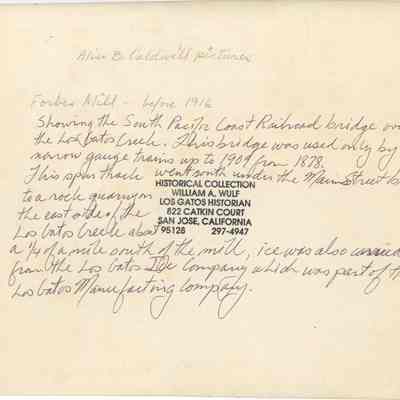 Alice B. Caldwell pictures
Forbes Mill - before 1916
Showing the South Pacific Coast Railroad bridge over
the Los Gatos Creek. This bridge was used only by
narrow gauge trains up to 1909 from 1878.
This spur track went south under the Main Street b
to a rock quarry on
the east side of the
Los Gatos Creek about
a 1/4 of a mile south of the mill, ice was also carried
from the Los Gatos Ice Company which was part of th
Los Gatos Manufacturing Company.
HISTORICAL COLLECTION
WILLIAM A. WULF
LOS GATOS HISTORIAN
822 CATKIN COURT
SAN JOSE, CALIFORNIA
95128 297-4947